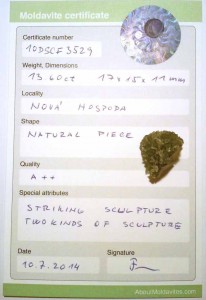 Moldavite certificate
Certificate number
10DSCF3529
Weight, Dimensions
13.60ct 17x15x11mm
Locality
NOVÁ HOSPODA
Shape
NATURAL PIECE
Quality
A++
Special attributes
STRIKING SCULPTURE
TWO KINDS OF SCULPTURE
Date
Signature
10.7.2014
AboutMoldavites.com